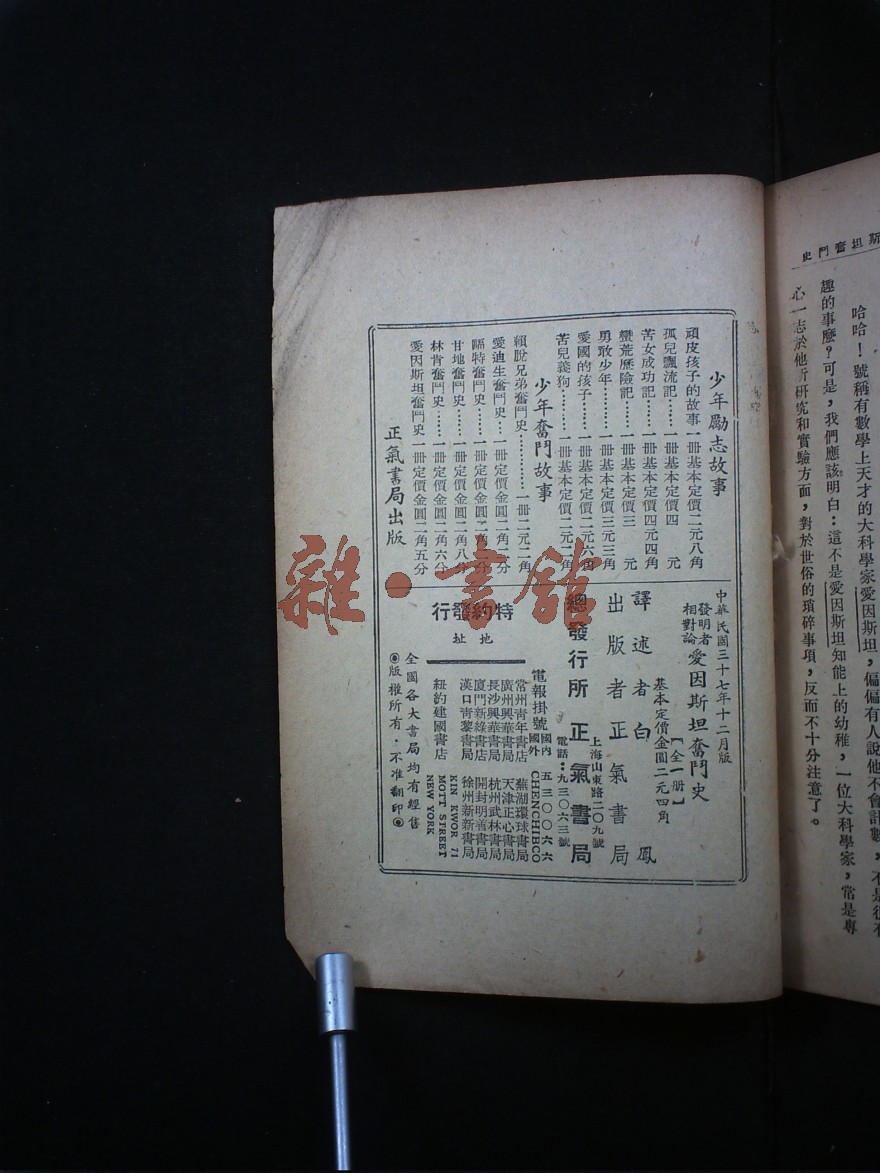 斯坦奮鬥史
哈哈！號稱有數學上天才的大科學家愛因斯坦，偏偏有人說他不會計數，不是很有
趣的事麼？可是，我們應該明白：這不是愛因斯坦知能上的幼稚，一位大科學家，常是專
心一志於他所研究和實驗方面，對於世俗的瑣碎事項，反而不十分注意了。
少年勵志故事
頑皮孩子的故事 一冊基本定價二元八角
孤兒飄流記…… 一冊基本定價四 元
苦女成功記…… 一冊基本定價四元四角
蠻荒歷險記…… 一冊基本定價三 元
勇敢少年……… 一冊基本定價三元三角
愛國的孩子…… 一冊基本定價二元六角
苦兒義狗……… 一冊基本定價二元二角
少年奮鬥故事
賴脫兄弟奮鬥史………… 一冊二元二角
愛迪生奮鬥史… 一冊定價金圓二角二分
福特奮鬥史…… 一冊定價金圓二角二分
甘地奮鬥史…… 一冊定價金圓二角八分
林肯奮鬥史…… 一冊定價金圓二角六分
愛因斯坦奮鬥史 一冊定價金圓二角五分
正氣書局出版
中華民國三十七年十二月版
發明者
相對論
愛因斯坦奮鬥史
【全一冊】
基本定價金圓二元四角
譯述者 白 鳳
出版者 正氣書局
總發行所 正氣書局
上海山東路二〇九號
電話：九三〇六三號
電報掛號
國內 五三〇〇六六
國外 CHENCHIBCO
特約發行
地址
常州青年書店 蕪湖環球書局
廣州興華書局 天津正心書局
長沙興華書局 杭州武林書局
廈門新綠書店 開封明善書局
漢口青黎書局 徐州新新書局
紐約建國書店
KIN KWOR 71
MOTT STREET
NEW YORK
全國各大書局均有經售
◉版權所有．不准翻印◉
雜·書館